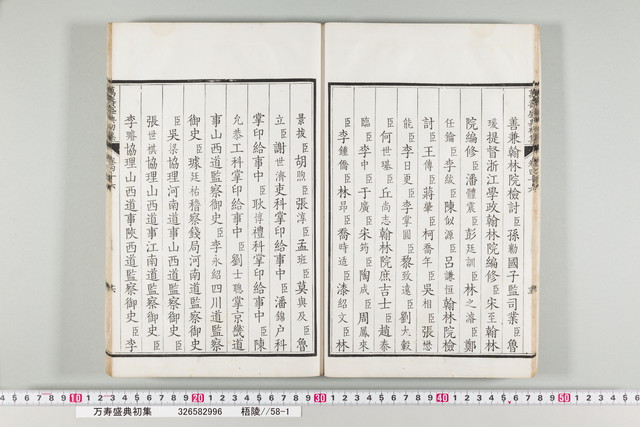 善兼翰林院檢討臣孫勷國子監司業臣魯
瑗提督浙江學政翰林院編修臣宋至翰林
院編修臣潘體震臣彭廷訓臣林之濬臣鄭
任鑰臣李紱臣陳似源臣呂謙恒翰林院檢
討臣王傳臣蔣肇臣柯喬年臣吳相臣張懋
能臣李日更臣李掌圓臣黎致遠臣劉夳觳
臣何世璂臣丘尚志翰林院庶吉士臣趙泰
臨臣李中臣于廣臣宋筠臣陶成臣周鳳來
臣李鍾僑臣林昂臣喬時适臣漆紹文臣林
景拔臣胡煦臣張淳臣孟班臣莫與及臣魯
立臣謝世濟吏科掌印給事中臣潘錦戶科
掌印給事中臣耿惇禮科掌印給事中臣陳
允恭工科掌印給事中臣劉士聰掌京畿道
事山西道監察御史臣李永紹四川道監察
御史臣璩廷祐稽察錢局河南道監察御史
臣吳㴾協理河南道事山西道監察御史臣
張世祺協理山西道事江南道監察御史臣
李㽛協理山西道事陝西道監察御史臣李
万寿盛典初集 326582996 梧陵//58-1
10 20 30 40 50